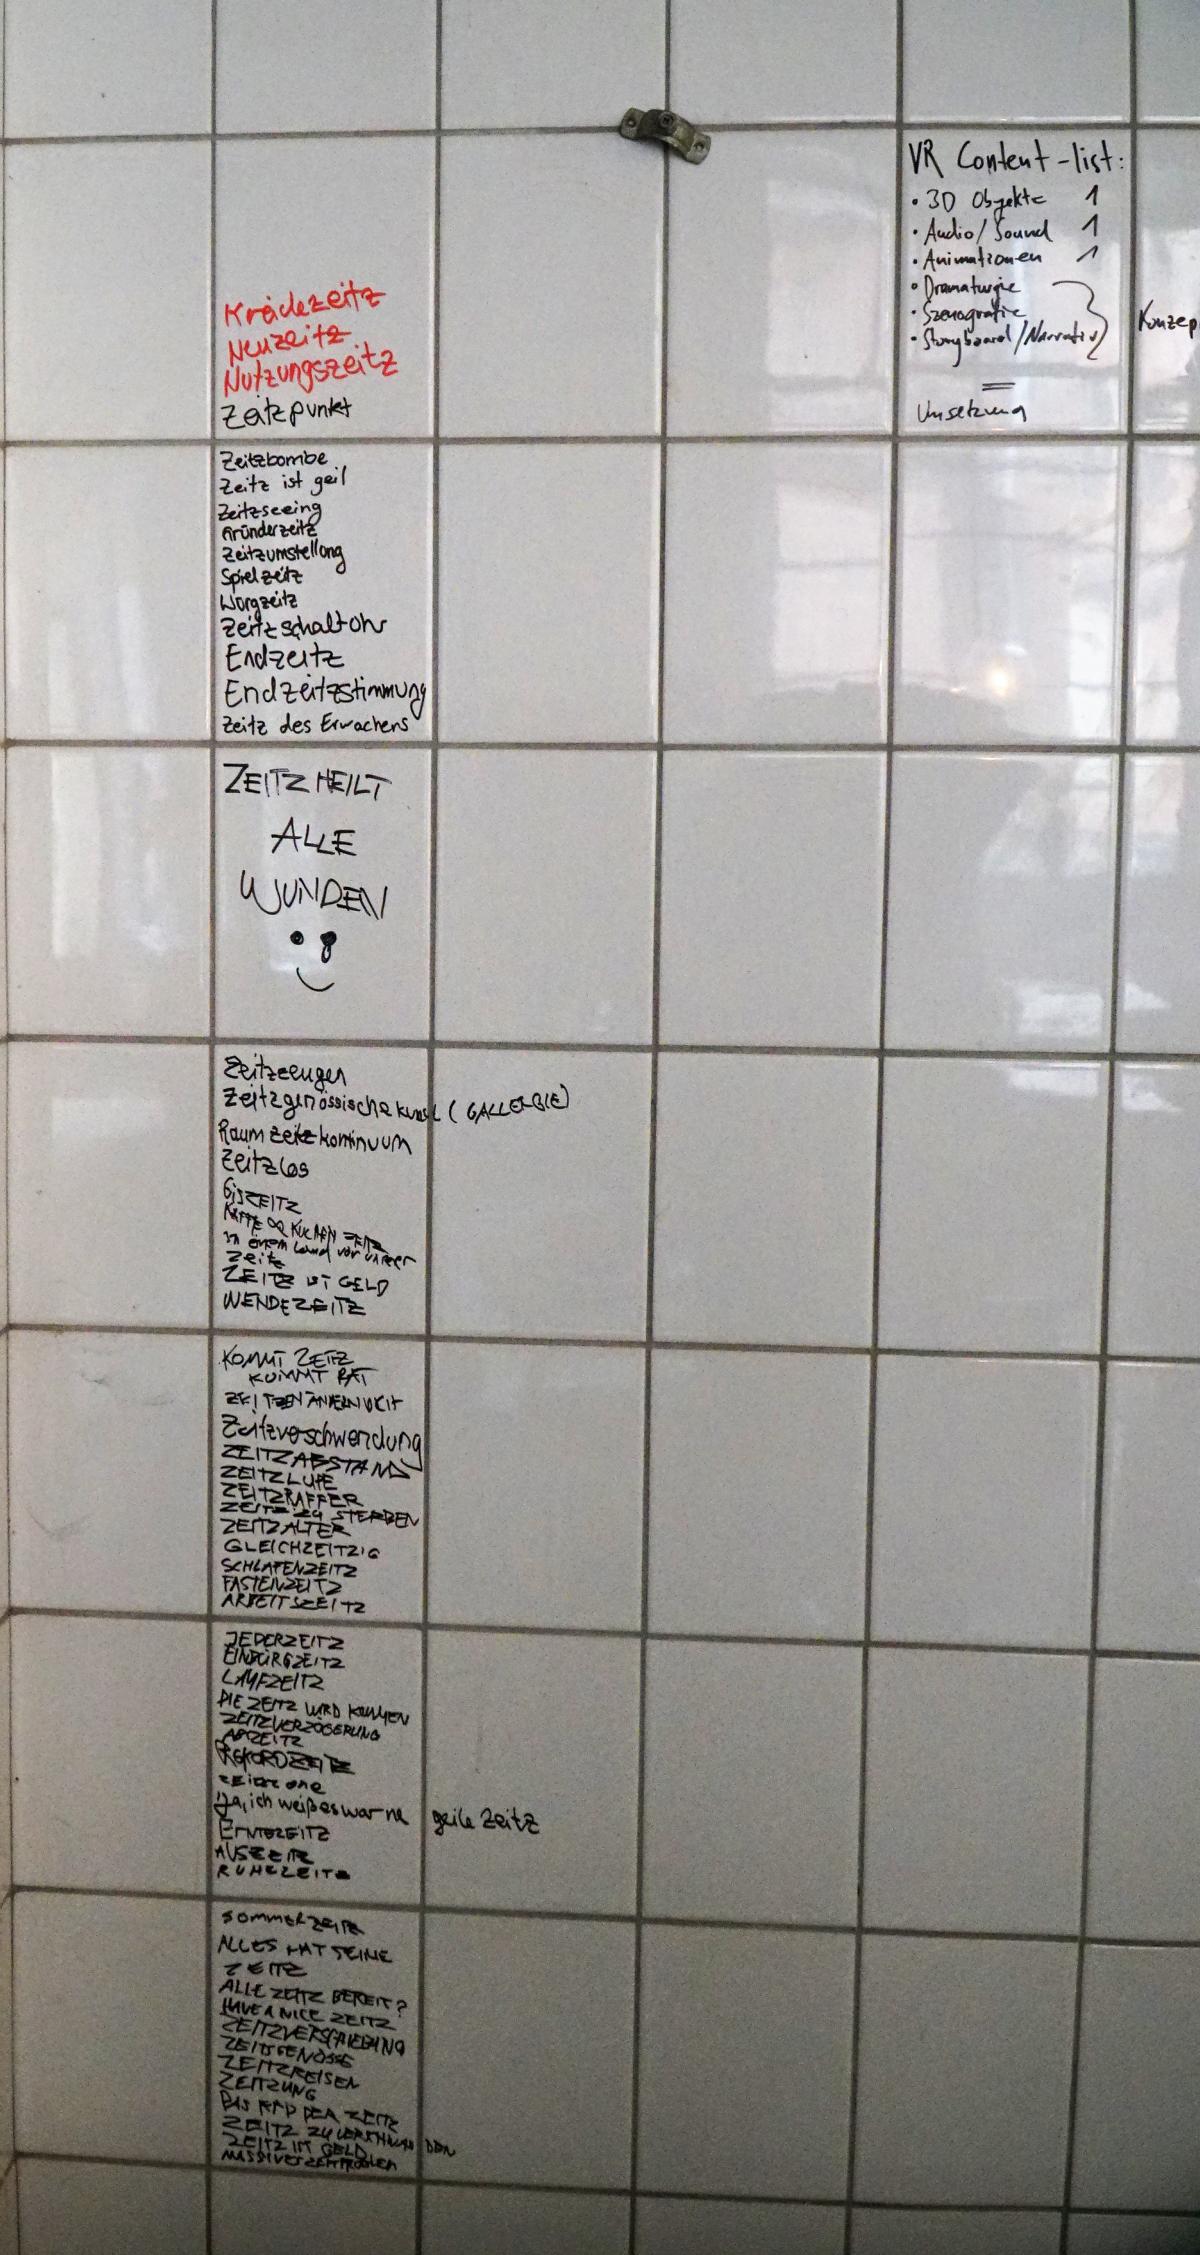 Kreidezeitz
Neuzeitz
Nutzungszeitz
Zeitzpunkt
Zeitzbombe
Zeitz ist geil
Zeitzseeing
Gründerzeitz
Zeitzumstellung
Spielzeitz
Worgzeitz
Zeitzschaltuhr
Endzeitz
Endzeitzstimmung
Zeitz des Erwachens
ZEITZ HEILT
ALLE
WUNDEN
Zeitzeugen
Zeitzgenössische Kunst (GALLERIE)
Raumzeitzkontinuum
Zeitzlos
EISZEITZ
KUCHEN ZEITZ
in einem Land vor unserer
Zeitz
ZEITZ IST GELD
WENDEZEITZ
KOMMT ZEITZ
KOMMT RAT
Zeitzverschwendung
ZEITZABSTAND
ZEITZLUPE
ZEITZRAFFER
ZEITZ ZU STERBEN
ZEITZALTER
GLEICHZEITZIG
SCHLAFENZEITZ
FASTENZEITZ
ARBEITSZEITZ
JEDERZEITZ
LAUFZEITZ
DIE ZEITZ WIRD KOMMEN
ZEITZVERZÖGERUNG
REKORDZEITZ
ZEITZONE
Ja, ich weiß es war ne geile Zeitz
ERNTEZEITZ
AUSZEITZ
RUHEZEITZ
SOMMERZEITZ
ALLES HAT SEINE
ZEITZ
ALLE ZEITZ BEREIT?
HAVE A NICE ZEITZ
ZEITZVERSCHIEBUNG
ZEITSGENOSSE
ZEITZREISEN
ZEITZUNG
DAS RAD DER ZEITZ
ZEITZ ZU
ZEITZ IST GELD
VR Content-list:
• 3D Objekte 1
• Audio/Sound 1
• Animationen 1
• Dramaturgie
• Szenografie
• Storyboard/Narrativ
Konzep
Umsetzung